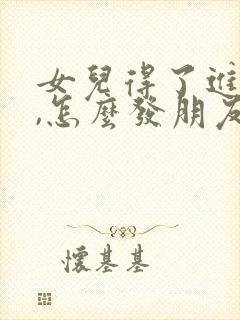 女兒得了進
,怎麼發朋友
懷基基